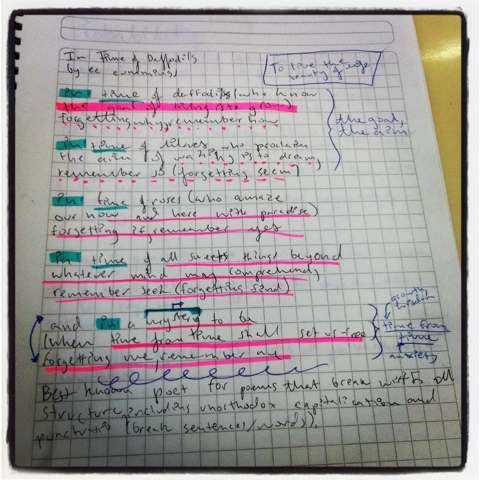 In Time of Daffodils
by ee cummings
To live through
beauty of
in time of daffodils (who know
the goal of living is to grow)
forgetting why, remember how
in time of lilacs who proclaim
the aim of waking is to dream,
remember so (forgetting seem)
the goal,
the aim
in time of roses (who amaze
our now and here with paradise)
forgetting if, remember yes
in time of all sweet things beyond
whatever mind may comprehend,
remember seek (forgetting find)
and in a mystery to be
(when time from time shall set us free)
forgetting me, remember me
growth
freedom
time from
time
anxiety
Best known poet for poems that break with all
structure including unorthodox capitalization and
punctuation (break sentences/words),